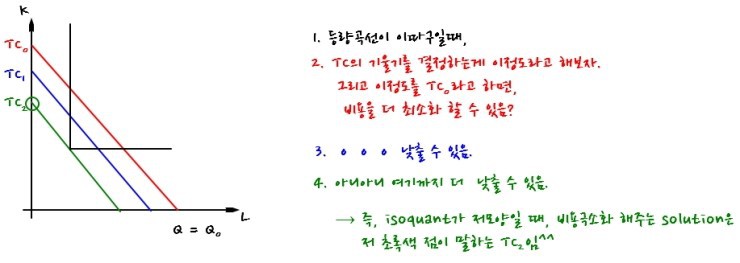 K
TC₀
TC₁
TC₂
L
Q = Q₀
1. 등량곡선이 이따구일때,
2. TC의 기울기를 결정하는게 이정도라고 해보자.
그리고 이정도를 TC₀라고 하면,
비용을 더 최소화 할 수 있음?
3. ㅇ ㅇ ㅇ 낮출 수 있음.
4. 아니아니 여기까지 더 낮출 수 있음.
→ 즉, isoquant가 저모양일 때, 비용극소화 해주는 solution은
저 초록색 점이 말하는 TC₂임^^